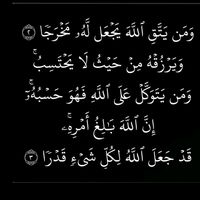 وَمَن يَتَّقِ ٱللَّهَ يَجْعَل لَّهُۥ مَخْرَجًا ٢
وَيَرْزُقْهُ مِنْ حَيْثُ لَا يَحْتَسِبُ ۚ
وَمَن يَتَوَكَّلْ عَلَى ٱللَّهِ فَهُوَ حَسْبُهُۥٓ ۚ
إِنَّ ٱللَّهَ بَـٰلِغُ أَمْرِهِۦ ۚ
قَدْ جَعَلَ ٱللَّهُ لِكُلِّ شَىْءٍ قَدْرًا ٣